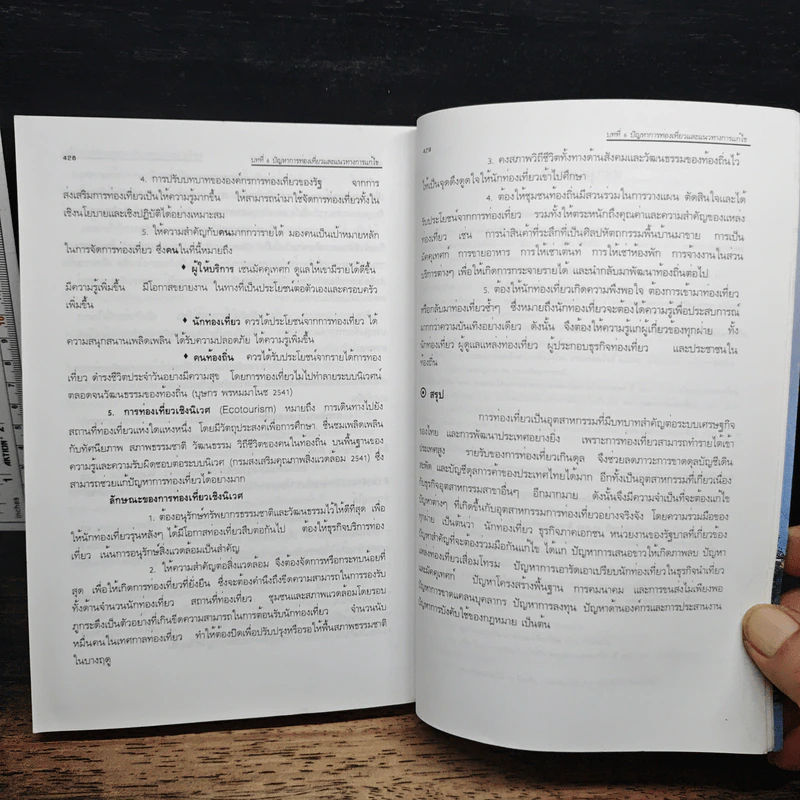 428
บทที่ 6 ปัญหาการท่องเที่ยวและแนวทางการแก้ไข
4. การปรับบทบาทขององค์กรการท่องเที่ยวของรัฐ จากการ
ส่งเสริมการท่องเที่ยวเป็นให้ความรู้มากขึ้น ให้สามารถนำมาใช้จัดการท่องเที่ยวทั้งใน
เชิงนโยบายและเชิงปฏิบัติได้อย่างเหมาะสม
5. ให้ความสำคัญกับคนมากกว่ารายได้ มองคนเป็นเป้าหมายหลัก
ในการจัดการท่องเที่ยว ซึ่งคนในที่นี้หมายถึง
♦ ผู้ให้บริการ เช่นมัคคุเทศก์ ดูแลให้เขามีรายได้ดีขึ้น
มีความรู้เพิ่มขึ้น มีโอกาสขยายงาน ในทางที่เป็นประโยชน์ต่อตัวเองและครอบครัว
เพิ่มขึ้น
♦ นักท่องเที่ยว ควรได้ประโยชน์จากการท่องเที่ยว ได้
ความสนุกสนานเพลิดเพลิน ได้รับความปลอดภัย ได้ความรู้เพิ่มขึ้น
♦ คนท้องถิ่น ควรได้รับประโยชน์จากรายได้การท่อง
เที่ยว ดำรงชีวิตประจำวันอย่างมีความสุข โดยการท่องเที่ยวไม่ไปทำลายระบบนิเวศน์
ตลอดจนวัฒนธรรมของท้องถิ่น (บุษกร พรหมมาโนช 2541)
5. การท่องเที่ยวเชิงนิเวศ (Ecotourism) หมายถึง การเดินทางไปยัง
สถานที่ท่องเที่ยวแห่งใดแห่งหนึ่ง โดยมีวัตถุประสงค์เพื่อการศึกษา ชื่นชมเพลิดเพลิน
กับทัศนียภาพ สภาพธรรมชาติ วัฒนธรรม วิถีชีวิตของคนในท้องถิ่น บนพื้นฐานของ
ความรู้และความรับผิดชอบต่อระบบนิเวศ (กรมส่งเสริมคุณภาพสิ่งแวดล้อม 2541) ซึ่ง
สามารถช่วยแก้ปัญหาการท่องเที่ยวได้อย่างมาก
ลักษณะของการท่องเที่ยวเชิงนิเวศ
1. ต้องอนุรักษ์ทรัพยากรธรรมชาติและวัฒนธรรมไว้ให้ดีที่สุด เพื่อ
ให้นักท่องเที่ยวรุ่นหลังๆ ได้มีโอกาสท่องเที่ยวสืบต่อกันไป ต้องให้ธุรกิจบริการท่อง
เที่ยว เน้นการอนุรักษ์สิ่งแวดล้อมเป็นสำคัญ
2. ให้ความสำคัญต่อสิ่งแวดล้อม จึงต้องจัดการหรือกระทบน้อยที่
สุด เพื่อให้เกิดการท่องเที่ยวที่ยั่งยืน ซึ่งจะต้องคำนึงถึงขีดความสามารถในการรองรับ
ทั้งด้านจำนวนนักท่องเที่ยว สถานที่ท่องเที่ยว ชุมชนและสภาพแวดล้อมโดยรอบ
ภูกระดึงเป็นตัวอย่างที่เกินขีดความสามารถในการต้อนรับนักท่องเที่ยว จำนวนนับ
หมื่นคนในเทศกาลท่องเที่ยว ทำให้ต้องปิดเพื่อปรับปรุงหรือรอให้พื้นสภาพธรรมชาติ
ในบางฤดู
429
บทที่ 6 ปัญหาการท่องเที่ยวและแนวทางการแก้ไข
3. คงสภาพวิถีชีวิตทั้งทางด้านสังคมและวัฒนธรรมของท้องถิ่นไว้
ให้เป็นจุดดึงดูดใจให้นักท่องเที่ยวเข้าไปศึกษา
4. ต้องให้ชุมชนท้องถิ่นมีส่วนร่วมในการวางแผน ตัดสินใจและได้
รับประโยชน์จากการท่องเที่ยว รวมทั้งให้ตระหนักถึงคุณค่าและความสำคัญของแหล่ง
ท่องเที่ยว เช่น การนำสินค้าที่ระลึกที่เป็นศิลปหัตถกรรมพื้นบ้านมาขาย การเป็น
มัคคุเทศก์ การขายอาหาร การให้เช่าเต๊นท์ การให้เช่าห้องพัก การจ้างงานในส่วน
บริการต่างๆ เพื่อให้เกิดการกระจายรายได้ และนำกลับมาพัฒนาท้องถิ่นต่อไป
5. ต้องให้นักท่องเที่ยวเกิดความพึงพอใจ ต้องการเข้ามาท่องเที่ยว
หรือกลับมาท่องเที่ยวซ้ำๆ ซึ่งหมายถึงนักท่องเที่ยวจะต้องได้ความรู้เพื่อประสบการณ์
มากกว่าความบันเทิงอย่างเดียว ดังนั้น จึงต้องให้ความรู้แก่ผู้เกี่ยวข้องทุกฝ่าย ทั้ง
นักท่องเที่ยว ผู้ดูแลแหล่งท่องเที่ยว ผู้ประกอบธุรกิจท่องเที่ยว และประชาชนใน
ท้องถิ่น
สรุป
การท่องเที่ยวเป็นอุตสาหกรรมที่มีบทบาทสำคัญต่อระบบเศรษฐกิจ
ของไทย และการพัฒนาประเทศอย่างยิ่ง เพราะการท่องเที่ยวสามารถทำรายได้เข้า
ประเทศสูง รายรับของการท่องเที่ยวเกินดุล จึงช่วยลดภาวะการขาดดุลบัญชีเดิน
สะพัด และบัญชีดุลการค้าของประเทศไทยได้มาก อีกทั้งเป็นอุตสาหกรรมที่เกี่ยวเนื่อง
กับธุรกิจอุตสาหกรรมสาขาอื่นๆ อีกมากมาย ดังนั้นจึงมีความจำเป็นที่จะต้องแก้ไข
ปัญหาต่างๆ ที่เกิดขึ้นกับอุตสาหกรรมการท่องเที่ยวอย่างจริงจัง โดยความร่วมมือของ
ทุกฝ่าย เป็นต้นว่า นักท่องเที่ยว ธุรกิจภาคเอกชน หน่วยงานของรัฐบาลที่เกี่ยวข้อง
ปัญหาสำคัญที่จะต้องร่วมมือกันแก้ไข ได้แก่ ปัญหาการเสนอข่าวให้เกิดภาพลบ ปัญหา
แหล่งท่องเที่ยวเสื่อมโทรม ปัญหาการเอารัดเอาเปรียบนักท่องเที่ยวในธุรกิจนำเที่ยว
และมัคคุเทศก์ ปัญหาโครงสร้างพื้นฐาน การคมนาคม และการขนส่งไม่เพียงพอ
ปัญหาการขาดแคลนบุคลากร ปัญหาการลงทุน ปัญหาด้านองค์กรและการประสานงาน
ปัญหาการบังคับใช้ของกฎหมาย เป็นต้น